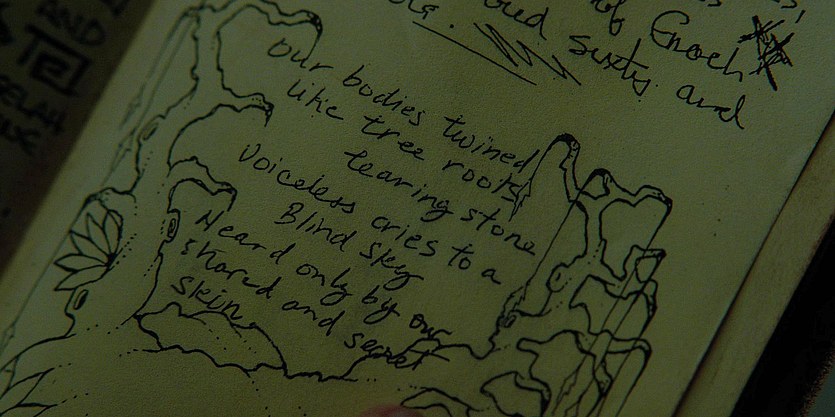 of Enoch
oud sixty and
our bodies twined
like tree roots
tearing stone
Voiceless cries to a
Blind sky
Heard only by our
shared and secret
skin
AND
SELAH